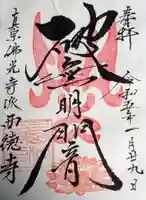 奉拝
令和五年一月廿九日
破無明闇
真宗佛光寺派西徳寺